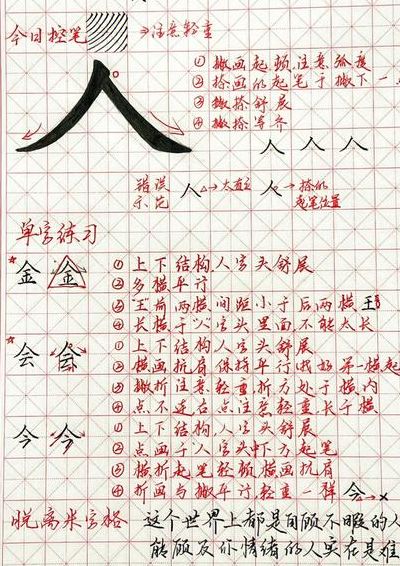 今日控笔 → 注意轻重
人
① 撇画起顿,注意弧度
② 捺画的起笔于撇下一
③ 撇捺舒展
④ 撇捺等齐
人 人 人
错误示范 人 → 太直 人 → 捺的起笔位置
单字练习
金 金 ① 上下结构,人字头舒展
② 多横平行
③ 王前两横间距小于后两横 王
④ 长横于人字头里面,不能太长
会 会 ① 上下结构,人字头舒展
② 横画抗肩,保持平行 第一横起
③ 撇折注意轻重,折方处于横内
④ 点不连,右点注意轻重,长于横
今 今 ① 上下结构,人字头舒展
② 点画于人字头中下方起笔
③ 横折起笔轻顿,横画抗肩
④ 折画与撇平行,轻重一群 今 → ×
脱离米字格 这个世界上都是自顾不暇的人
能顾及你情绪的人实在是难